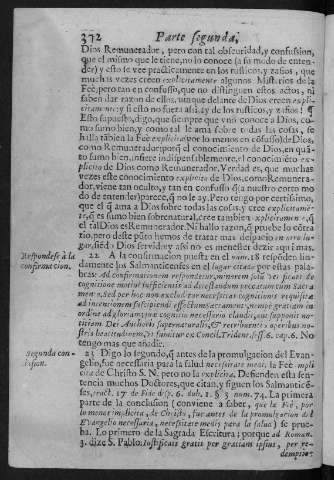 372 Parte segunda,
Dios Remunerador, pero con tal obscuridad, y confusion,
que el mismo que le tiene, no lo conoce (a su modo de enten-
der) y esto se vee practicamente en los rusticos, y zafios, que
muchas vezes creen explicitamente algunos Misterios de la
Feè, pero tan en confusso, que no distinguen estos actos, ni
saben dar razon de ellos, aunque delante de Dios creen expli-
citamente: y si esto no fuera assi, ay de los rusticos, y zafios! ¶
Esto supuesto, digo, que siempre que vno conoce a Dios, co-
mo sumo bien, y como tal le ama sobre todas las cosas, se
halla tābien la Feè explicita (por lo menos en cōfusso) de Dios,
como Remunerador: porq̄ el conocimiento de Dios, en quā-
to sumo bien, infiere indispensablemente, el conocimiēto ex-
plicito de Dios como Remunerador. Verdad es, que muchas
vezes este conocimiento explicito de Dios, como Remunera-
dor, viene tan oculto, y tan en confusso q̄ (a nuestro corto mo
do de entender) parece, q̄ no le ay. Pero tengo por certissimo,
que si q̄ ama a Dios sobre todas las cosas, y cree explicitamen-
te, q̄ es sumo bien sobrenatural, cree tambien explicitamente, q̄
el tal Dios es Remunerador. Ni hallo razon, q̄ pruebe lo cōtra
rio, pero deste pūto hemos de tratar mas despacio en otro lu-
gar, siēdo Dios servido, y assi no es menester dezir aqui mas.
Respondese à la confirmacion.
22 A la confirmacion puesta en el num. 18 responden lin-
damente los Salmanticenses en el lugar citado por estas pala-
bras: Ad confirmationem respondetur, minorem solū verificari de
cognitione motivi sufficientis ad discedendum peccatum Sacra-
men
Segunda con- clusion.
23 Digo lo segundo, q̄ antes de la promulgacion del Evan-
gelio, fue necessaria para la salud necessitate medij la Feè impli
cita de Christo S. N. pero no la explicita. Defienden esta sen-
tencia muchos Doctores, que citan, y siguen los Salmanticē-
ses, tract. 17 de Fide disp. 6. dub. 1. § 3 num. 74. La primera
parte de la conclusion (conviene a saber, que la Feè, por
lo menos implicita, de Christo, fue antes de la promulgacion del
Evangelio necessaria, necessitate medij para la salud) se prue-
ba. Lo primero de la Sagrada Escritura; porque ad Roman.
3. dize S. Pablo: Iustificati gratis per gratiam ipsius, per re-
demptio-